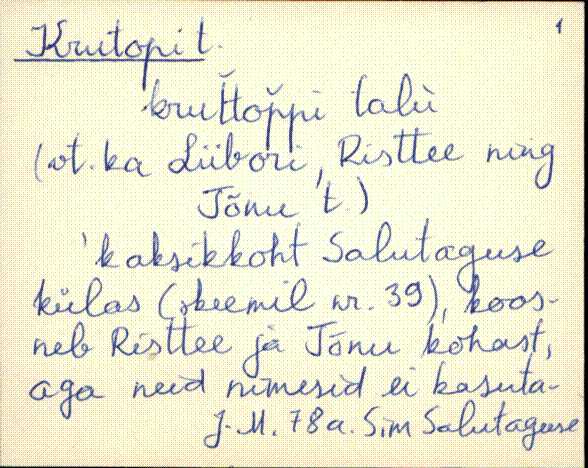 1
Krutopi t.
krut̆t̆op̆pi talù
(vt. ka Liibori, Risttee ning
Jõnu t.)
'kaksikkoht Salutaguse
külas (skeemil nr. 39), koos-
neb Risttee ja Jõnu kohast,
aga neid nimesid ei kasuta-
J. M. 78a. Sim Salutaguse